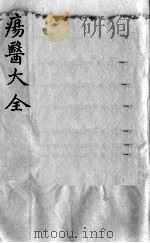 瘍醫大全
mtoou.info